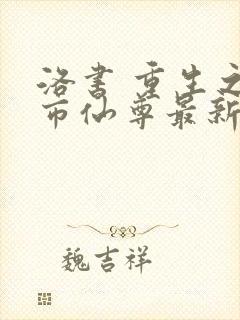 洛书 重生之
市仙尊最新
魏吉祥